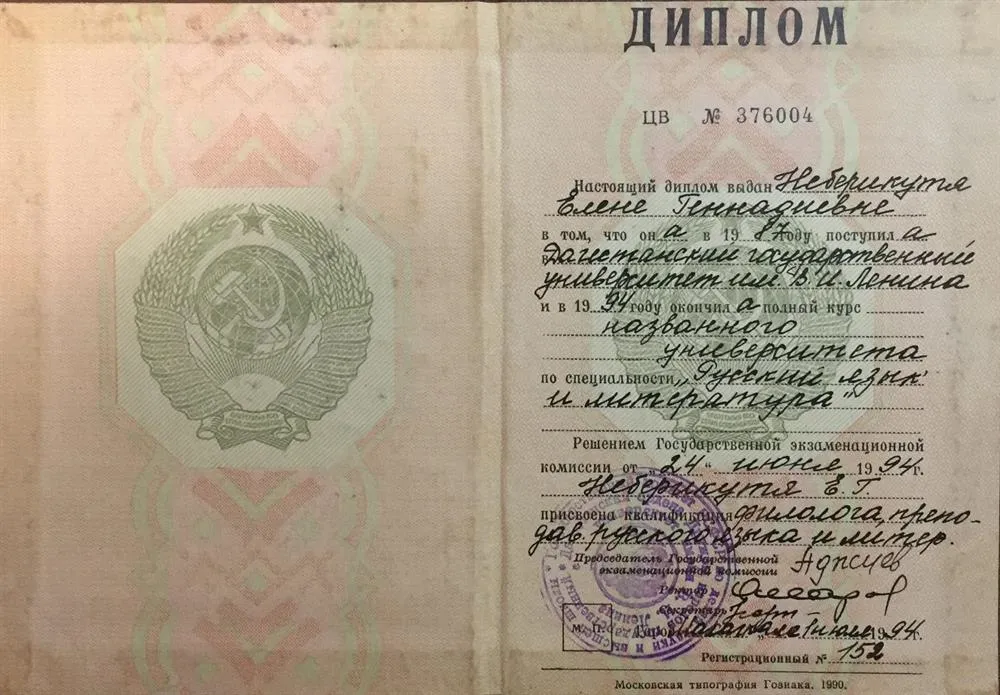 ДИПЛОМ
ЦВ № 376004
Настоящий диплом выдан Неберикутя
Елене Геннадиевне
в том, что она в 1987 году поступила
в Дагестанский государственный
университет им. В. И. Ленина
и в 1994 году окончила полный курс
названного
университета
по специальности „Русский язык
и литература"
Решением Государственной экзаменационной
комиссии от „24" июня 1994 г.
Неберикутя Е. Г.
присвоена квалификация филолога, препо-
дав. русского языка и литер.
Председатель Государственной
экзаменационной комиссии
Ректор
Секретарь
М. П. Город Махачкала июля 1994 г.
Регистрационный № 152
Московская типография Гознака. 1990.